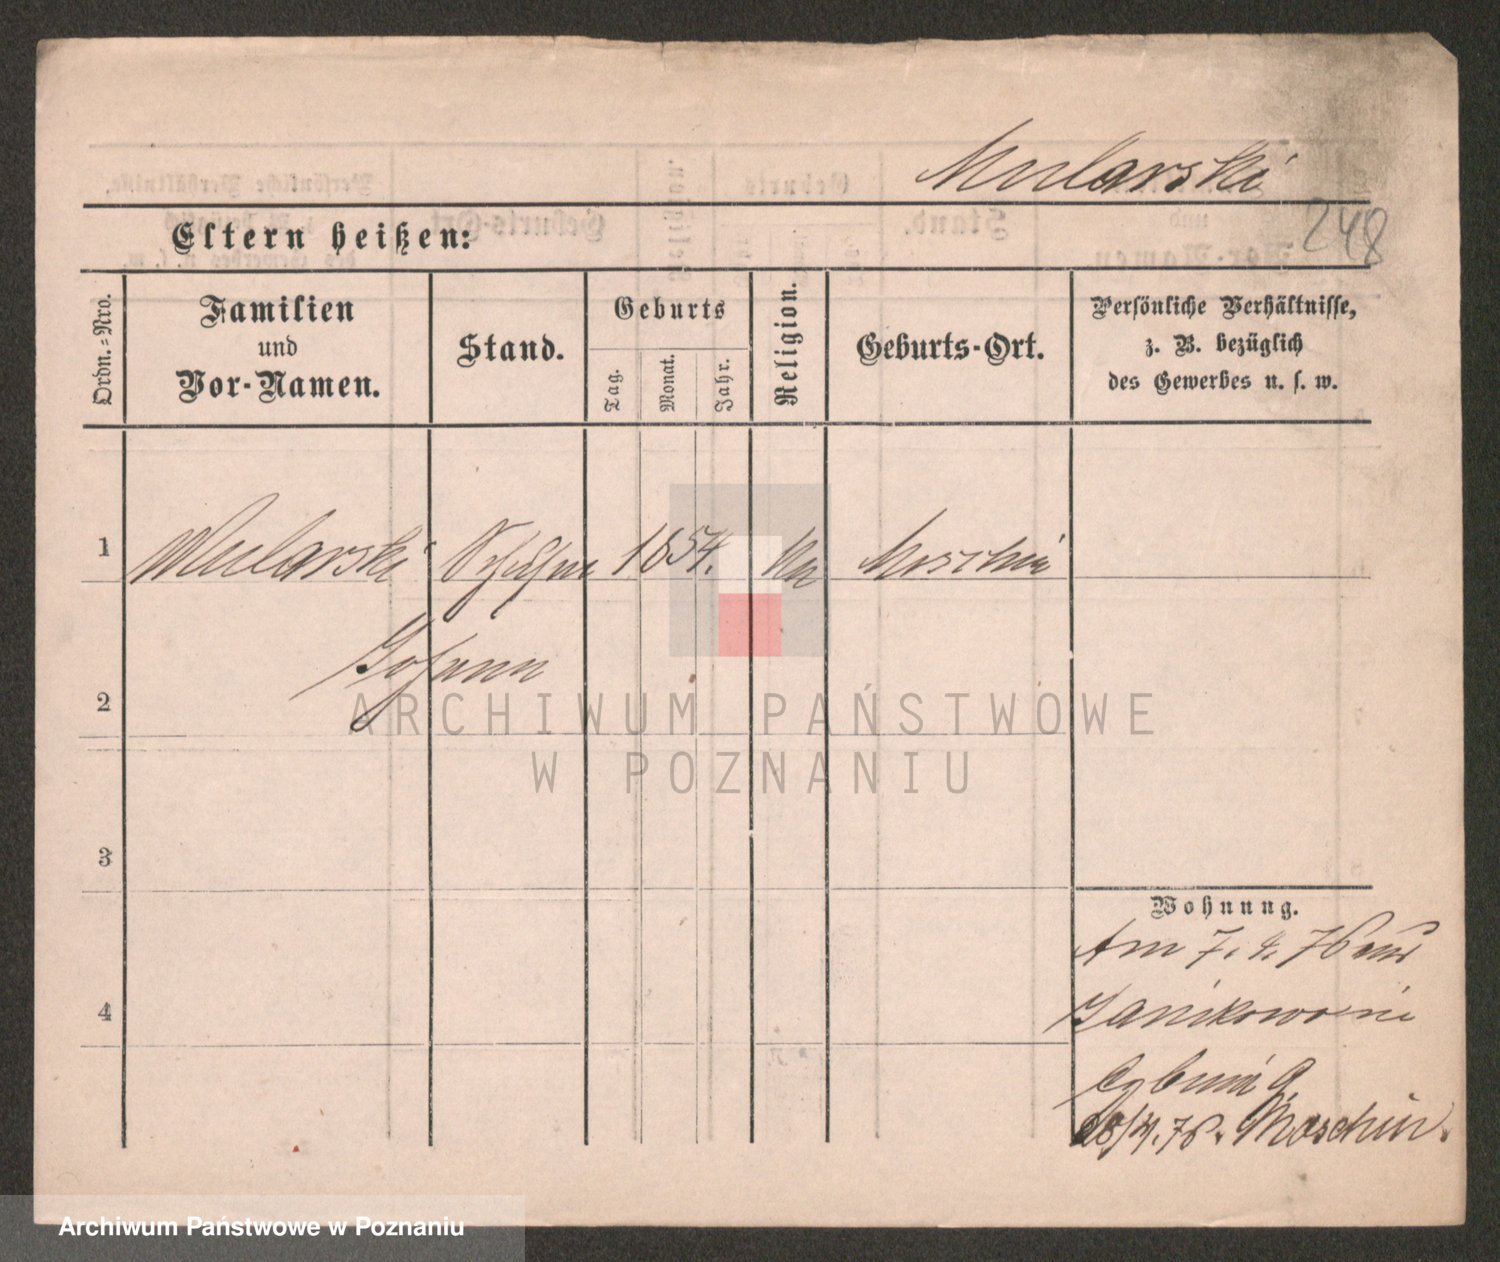 Mularski
248
Eltern heißen:
Ordn.-Nro.
Familien
und
Vor-Namen.
Stand.
Geburts
Tag.
Monat.
Jahr.
Religion.
Geburts-Ort.
Persönliche Verhältnisse,
z. B. bezüglich
des Gewerbes u. s. w.
1
Mularski
1854.
Moschin
Johann
2
3
4
Wohnung.
Am 7. 4. 76 aus
Cybina 9
/4. 76. Moschin.
ARCHIWUM PAŃSTWOWE
W POZNANIU
Archiwum Państwowe w Poznaniu